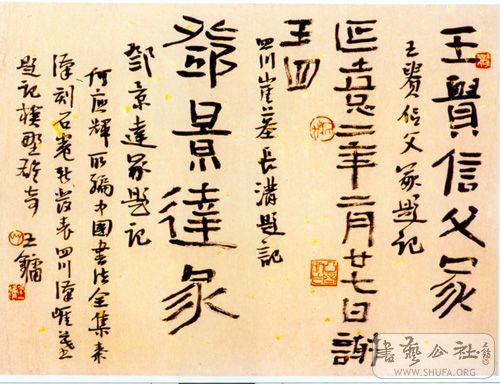 王賢信父冢
王賢信父冢題記
延熹二年二月廿七日謝
王四
四川崖墓長溝題記
鄧景達冢
鄧景達冢題記
何应輝所编中國書法全集秦
漢刻石卷新發表四川漢崖墓
題記樸野奇 王鏞
書藝公社
WWW.SHUFA.ORG